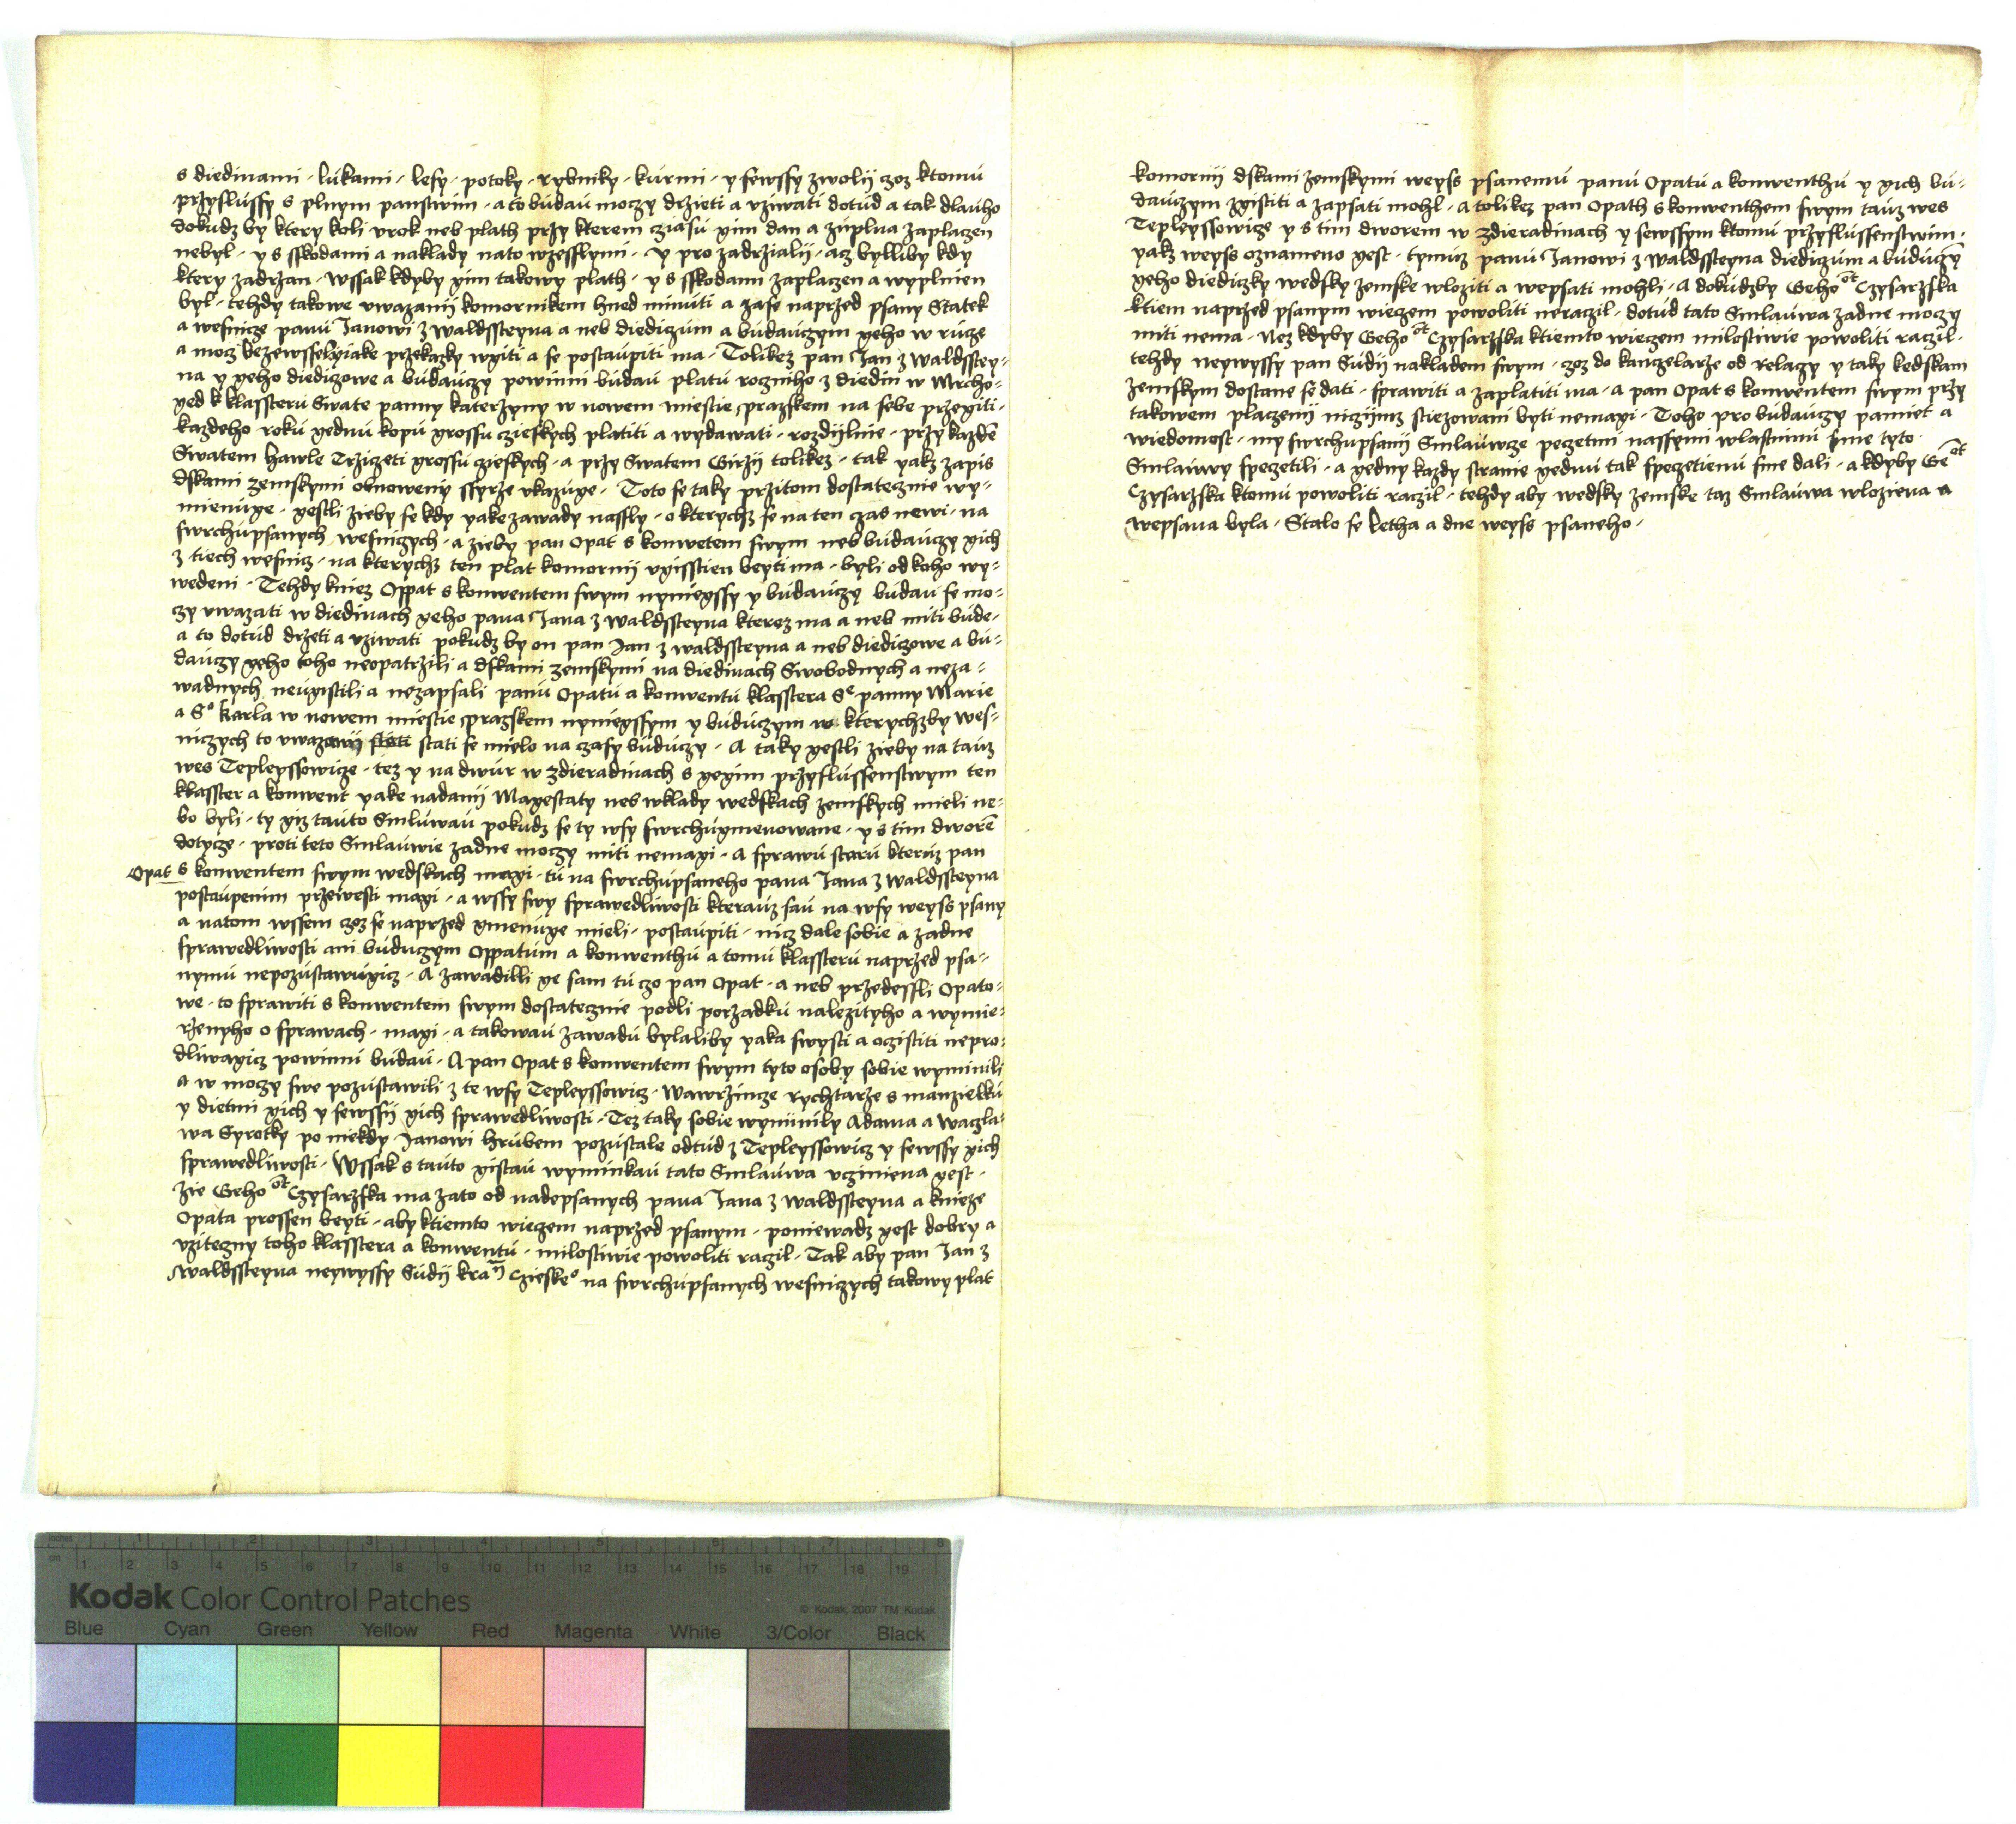 s diedinami · lúkami · lesy · potoky · rybniky · kúrmi · y sewssy zwolij czoz ktomú
przyslússy s plnym panstwim · a to búdaú moczy drzieti a vziwati dotúd a tak dlaúho
dokudz by ktery koli vrok neb plath przy kterem cziasú gim dan a zúplna zaplaczen
nebyl · y s sskodami a naklady nato wzesslymi · y pro zadrzialij · acz bylliby kdy
ktery zadrzan · wssak kdyby gim takowy plath · y s sskodami zaplaczen a wyplnien
byl · tehdy takowe vwazanij komornikem hned minúti a zase naprzed psany Statek
a wesnicze panú Janowi z Waldssteyna a neb diediczúm a búdaúczym geho w rúcze
a mocz bezewsselyiake przekazky wgiti a se postaúpiti ma · Tolikez pan Jan z Waldsstey-
na y geho diediczowe a búdaúczy powinni búdaú platú roczniho z diedin w Mrcho-
ged k klassterú Swate panny katerzyny w nowem miestie prazskem na sebe przegiti ·
každeho rokú gednú kopú grossu czieskych platiti a wydawati · rozdijlnie · przy každē
Swatem Hawle Trziczeti grossú czieskych · a przy Swatem Girzij tolikez · tak yakz zapis
dskami zemskymi obnoweny ssyrze vkazúge · Toto se taky przitom dostatecznie wy-
mieniúge · gestli zieby se kdy yake zawady nassly · o kterychz se na ten czas newi · na
swrchúpsanych wesniczych · a zieby pan Opat s konwetem swym neb búdaúczy gich
z tiech wesnicz · na kterychz ten plat komornij vgisstien beyti ma · byli od koho wy-
wedeni · Tehdy kniez Oppat s konwentem swym nyniegssy y búdaúczy búdaú se mo-
czy vwazati w diedinach geho pana Jana z Waldssteyna kterez ma a neb miti búde ·
a to dotúd drzeti a vziwati pokudz by on pan Jan z waldssteyna a neb diediczowe a bú-
daúczy geho toho neopatrzili a dskami zemskymi na diedinach Swobodnych a neza-
wadnych neúgistili a nezapsali panú Opatú a konwentú klasstera Se panny Marie
a So Karla w nowem miestie prazskem nyniegssym y búdúczym w kterychzby wes-
niczych to vwazanij stati se mielo na czasy búdúczy · A taky gestli zieby na taúz
wes Tepleyssowicze · tez y na dwúr w zdieradinach s gegim przyslússenstwym ten
klasster a konwent yake nadanij Magestaty neb wklady wedskach zemskych mieli ne-
bo byli · ty giz taúto Smlúwaú pokudz se ty wsy swrchúgmenowane · y s tim dworē
dotycze · proti teto Smlaúwie zadne moczy miti nemagi · A sprawú starú kterúz pan
Opat s konwentem swym wedskach magi · tú na swrchúpsaneho pana Jana z Waldssteyna
postaúpenim przewesti magi · a wssy swy sprawedliwosti kteraúz saú na wsy weyss psany
a natom wssem czoz se naprzed gmenúge mieli · postaúpiti · nicz dale sobie a zadne
sprawedliwosti ani búduczym Oppatúm a konwenthú a tomú klassterú naprzed psa-
nymú nepozústawúgicz · A zawadilli ge sam tú czo pan Opat · a neb przedessli Opato-
we · to sprawiti s konwentem swym dostatecznie podli porzadkú nalezityho a wymie-
rzenyho o sprawach · magi · a takowaú zawadú bylaliby yaka swysti a ocgistiti nepro-
dliwagicz powinni búdaú · A pan Opat s konwentem swym tyto osoby sobie wyminili
a w moczy swe pozústawili z te wsy Tepleyssowicz · Wawrzincze rychtarze s manzielkú
y dietmi gich y sewssij gich sprawedliwosti · Tez taky sobie wyminily Adama a Waczla-
wa Syrotky po niekdy Janowi Hrúbem pozústale odtúd z Tepleyssowicz y sewssy gich
sprawedliwosti · Wssak s taúto gistaú wyminkaú tato Smlaúwa vcziniena gest ·
Zie Geho ot Czysarzska ma zato od nadepsanych pana Jana z Waldssteyna a knieze
Opata prossen beyti · aby ktiemto wieczem naprzed psanym · poniewadz gest dobry a
vzitezny toho klasstera a konwentú · milostiwie powoliti raczil · Tak aby pan Jan z
Waldssteyna neywyssy Súdij kra Czieskeo na swrchúpsanych wesniczych takowy plat
komornij dskami zemskymi weyss psanemú panú Opatú a konwenthú y gich bú-
daúczym zgistiti a zapsati mohl · A tolikez pan Opath s konwenthem swym taúz wes
Tepleyssowicze y s tim dworem w zdieradinach y sewssym ktomú przyslússenstwim ·
yakz weyss oznameno gest · tymúz panú Janowi z Waldssteyna diediczúm a búdúczȳ
geho diediczky wedsky zemske wloziti a wepsati mohli · A dokúdzby Geho ot Czysarzska
ktiem naprzed psanym wieczem powoliti neraczil · dotúd tato Smlaúwa zadne moczy
miti nema · Nez kdyby Geho ot Czysarzska ktiemto wieczem milostiwie powoliti raczil ·
tehdy neywyssy pan Súdij nakladem swym · czoz do kanczelarze od relaczy y taky kedskam
zemskym dostane se dati · sprawiti a zaplatiti ma · a pan Opat s konwentem swym przy
takowem placzenij niczijmz stiezowani byti nemagi · Toho pro búdaúczy pamiet a
wiedomost · my swrchupsanij Smlaúwcze peczetmi nassymi wlastnimi sme tyto
Smlaúwy speczetili · a gedny kazdy stranie gednú tak speczetienú sme dali · a kdyby Ge ot
Czysarzska ktomú powoliti raczil · tehdy aby wedsky zemske taz Smlaúwa wloziena a
wepsana byla · Stalo se Letha a dne weyss psaneho ·
inches 1 2 3 4 5 6 7 8
cm 1 2 3 4 5 6 7 8 9 10 11 12 13 14 15 16 17 18 19
Kodak Color Control Patches
© Kodak, 2007 TM: Kodak
Blue Cyan Green Yellow Red Magenta White 3/Color Black